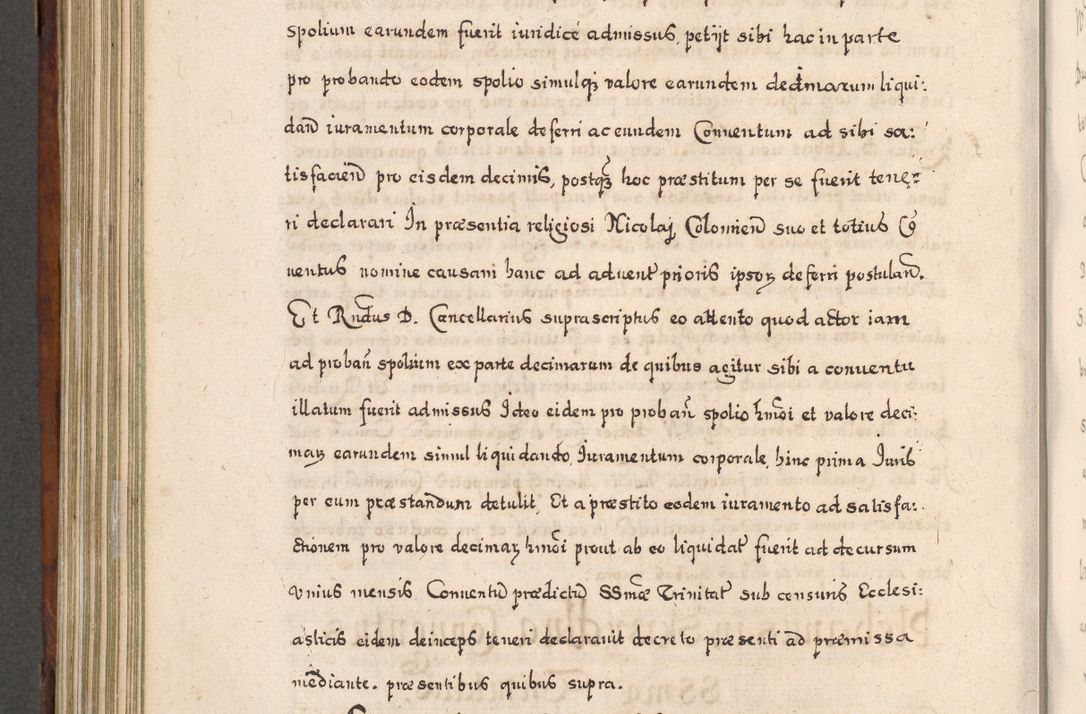 spolium earundem fuerit iuridicè admissus, petijt sibi hac in parte
pro probando eodem spolio simulq̃ valore earundem decimarum liqui:
dan̄ iuramentum corporale deferri ac eundem Conventum ad sibi sa:
tisfacien̄ pro eisdem decimis, postq̃ hoc præstitum per se fuerit tene:
ri declarari In præsentia religiosi Nicolaj Colomien̄ suo et totius Cō
ventus nomine causam hanc ad advent̄ prioris ipsoꝝ deferri postulan̄.
Et Rndus D. Cancellarius suprascriptus eo attento quod actor iam
ad proban̄ spolium ex parte decimarum de quibus agitur sibi a conventu
illatum fuerit admissus Ideo eidem pro proban̄ spolio hmōi et valore deci:
maꝝ earundem simul liquidando, Iuramentum corporale, hinc prima Iuris
per eum præstandum detulit, Et a præstito eodem iuramento ad satisfa:
ctionem pro valore decimaꝝ hmōi prout ab eo liquidat̄ fuerit ad decursum
vnius mensis Conventū prædictū SSmæ Trinitat̄ sub censuris Ecclesi:
asticis eidem deinceps teneri declaravit decreto præsenti ad præmissa
mēdiante. præsentibus quibus supra.